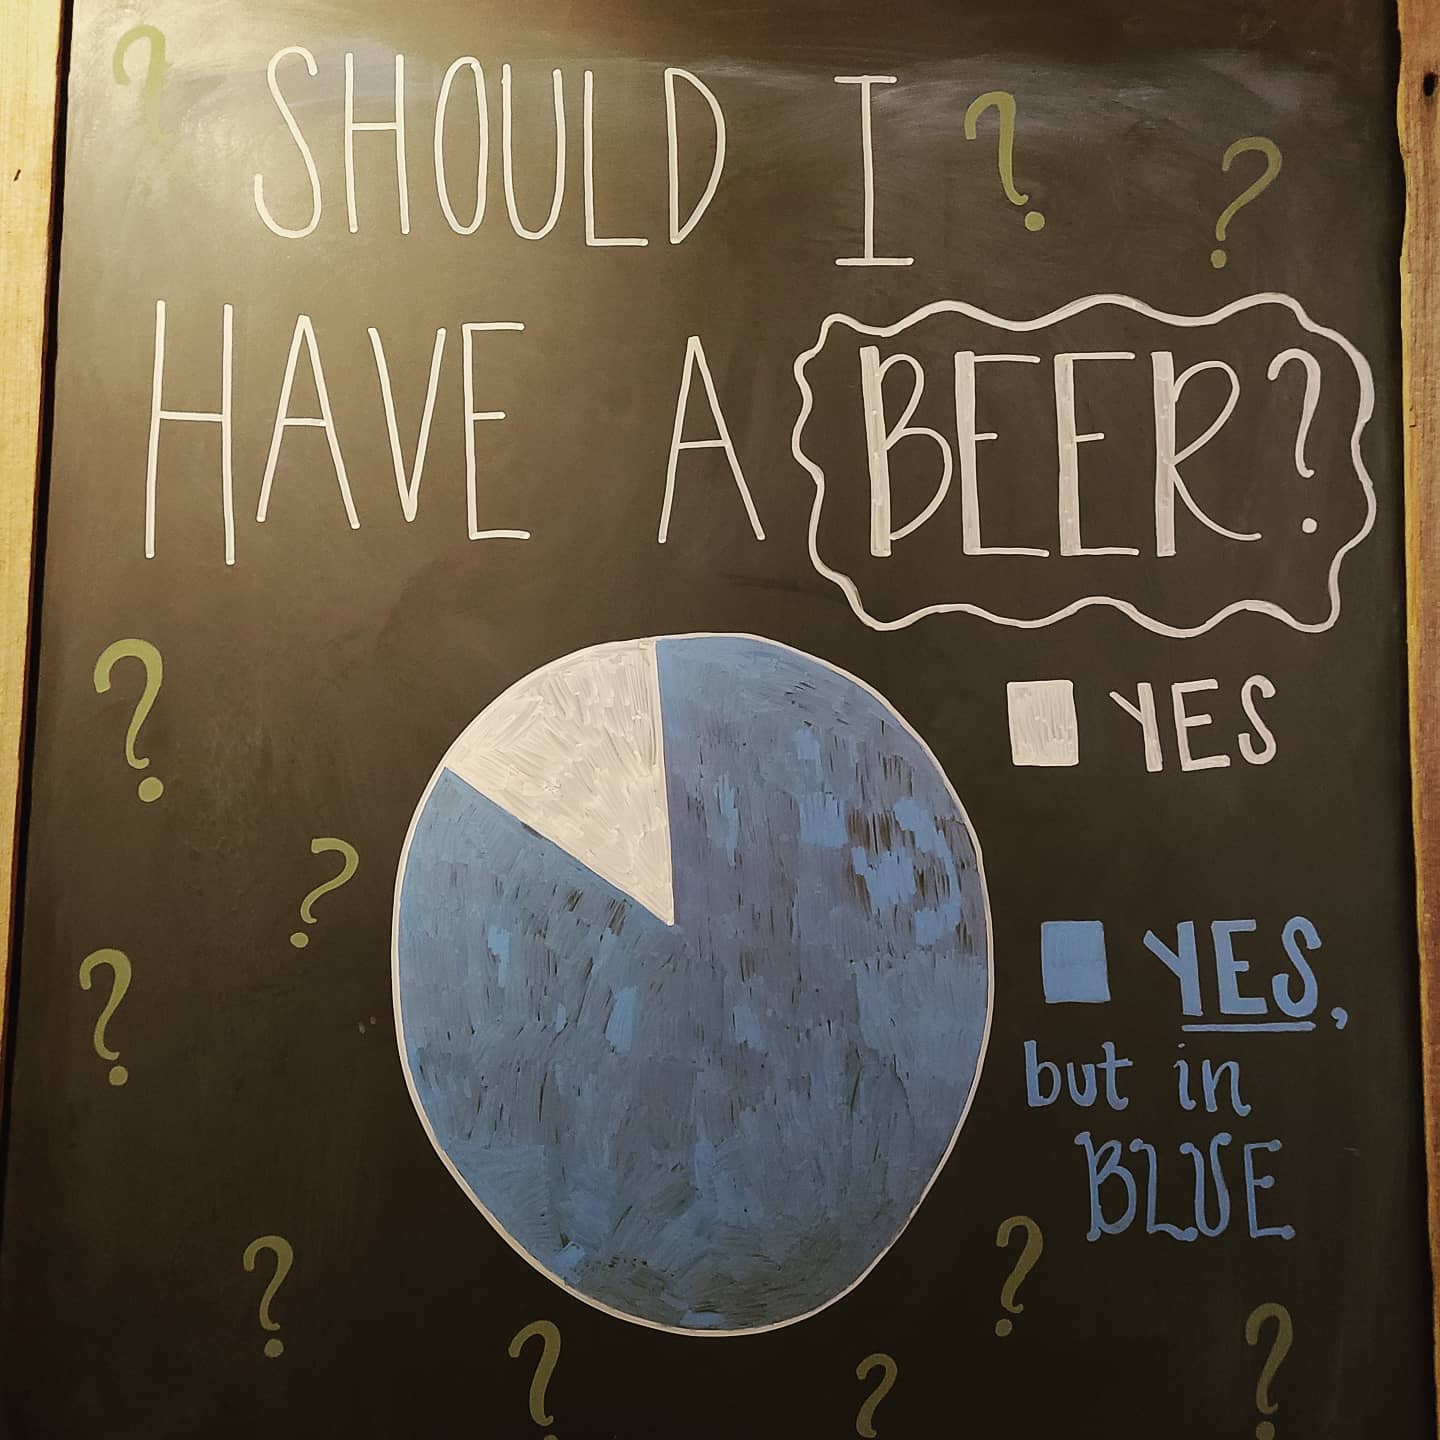 SHOULD I
HAVE A BEER?
YES
YES,
but in
BLUE